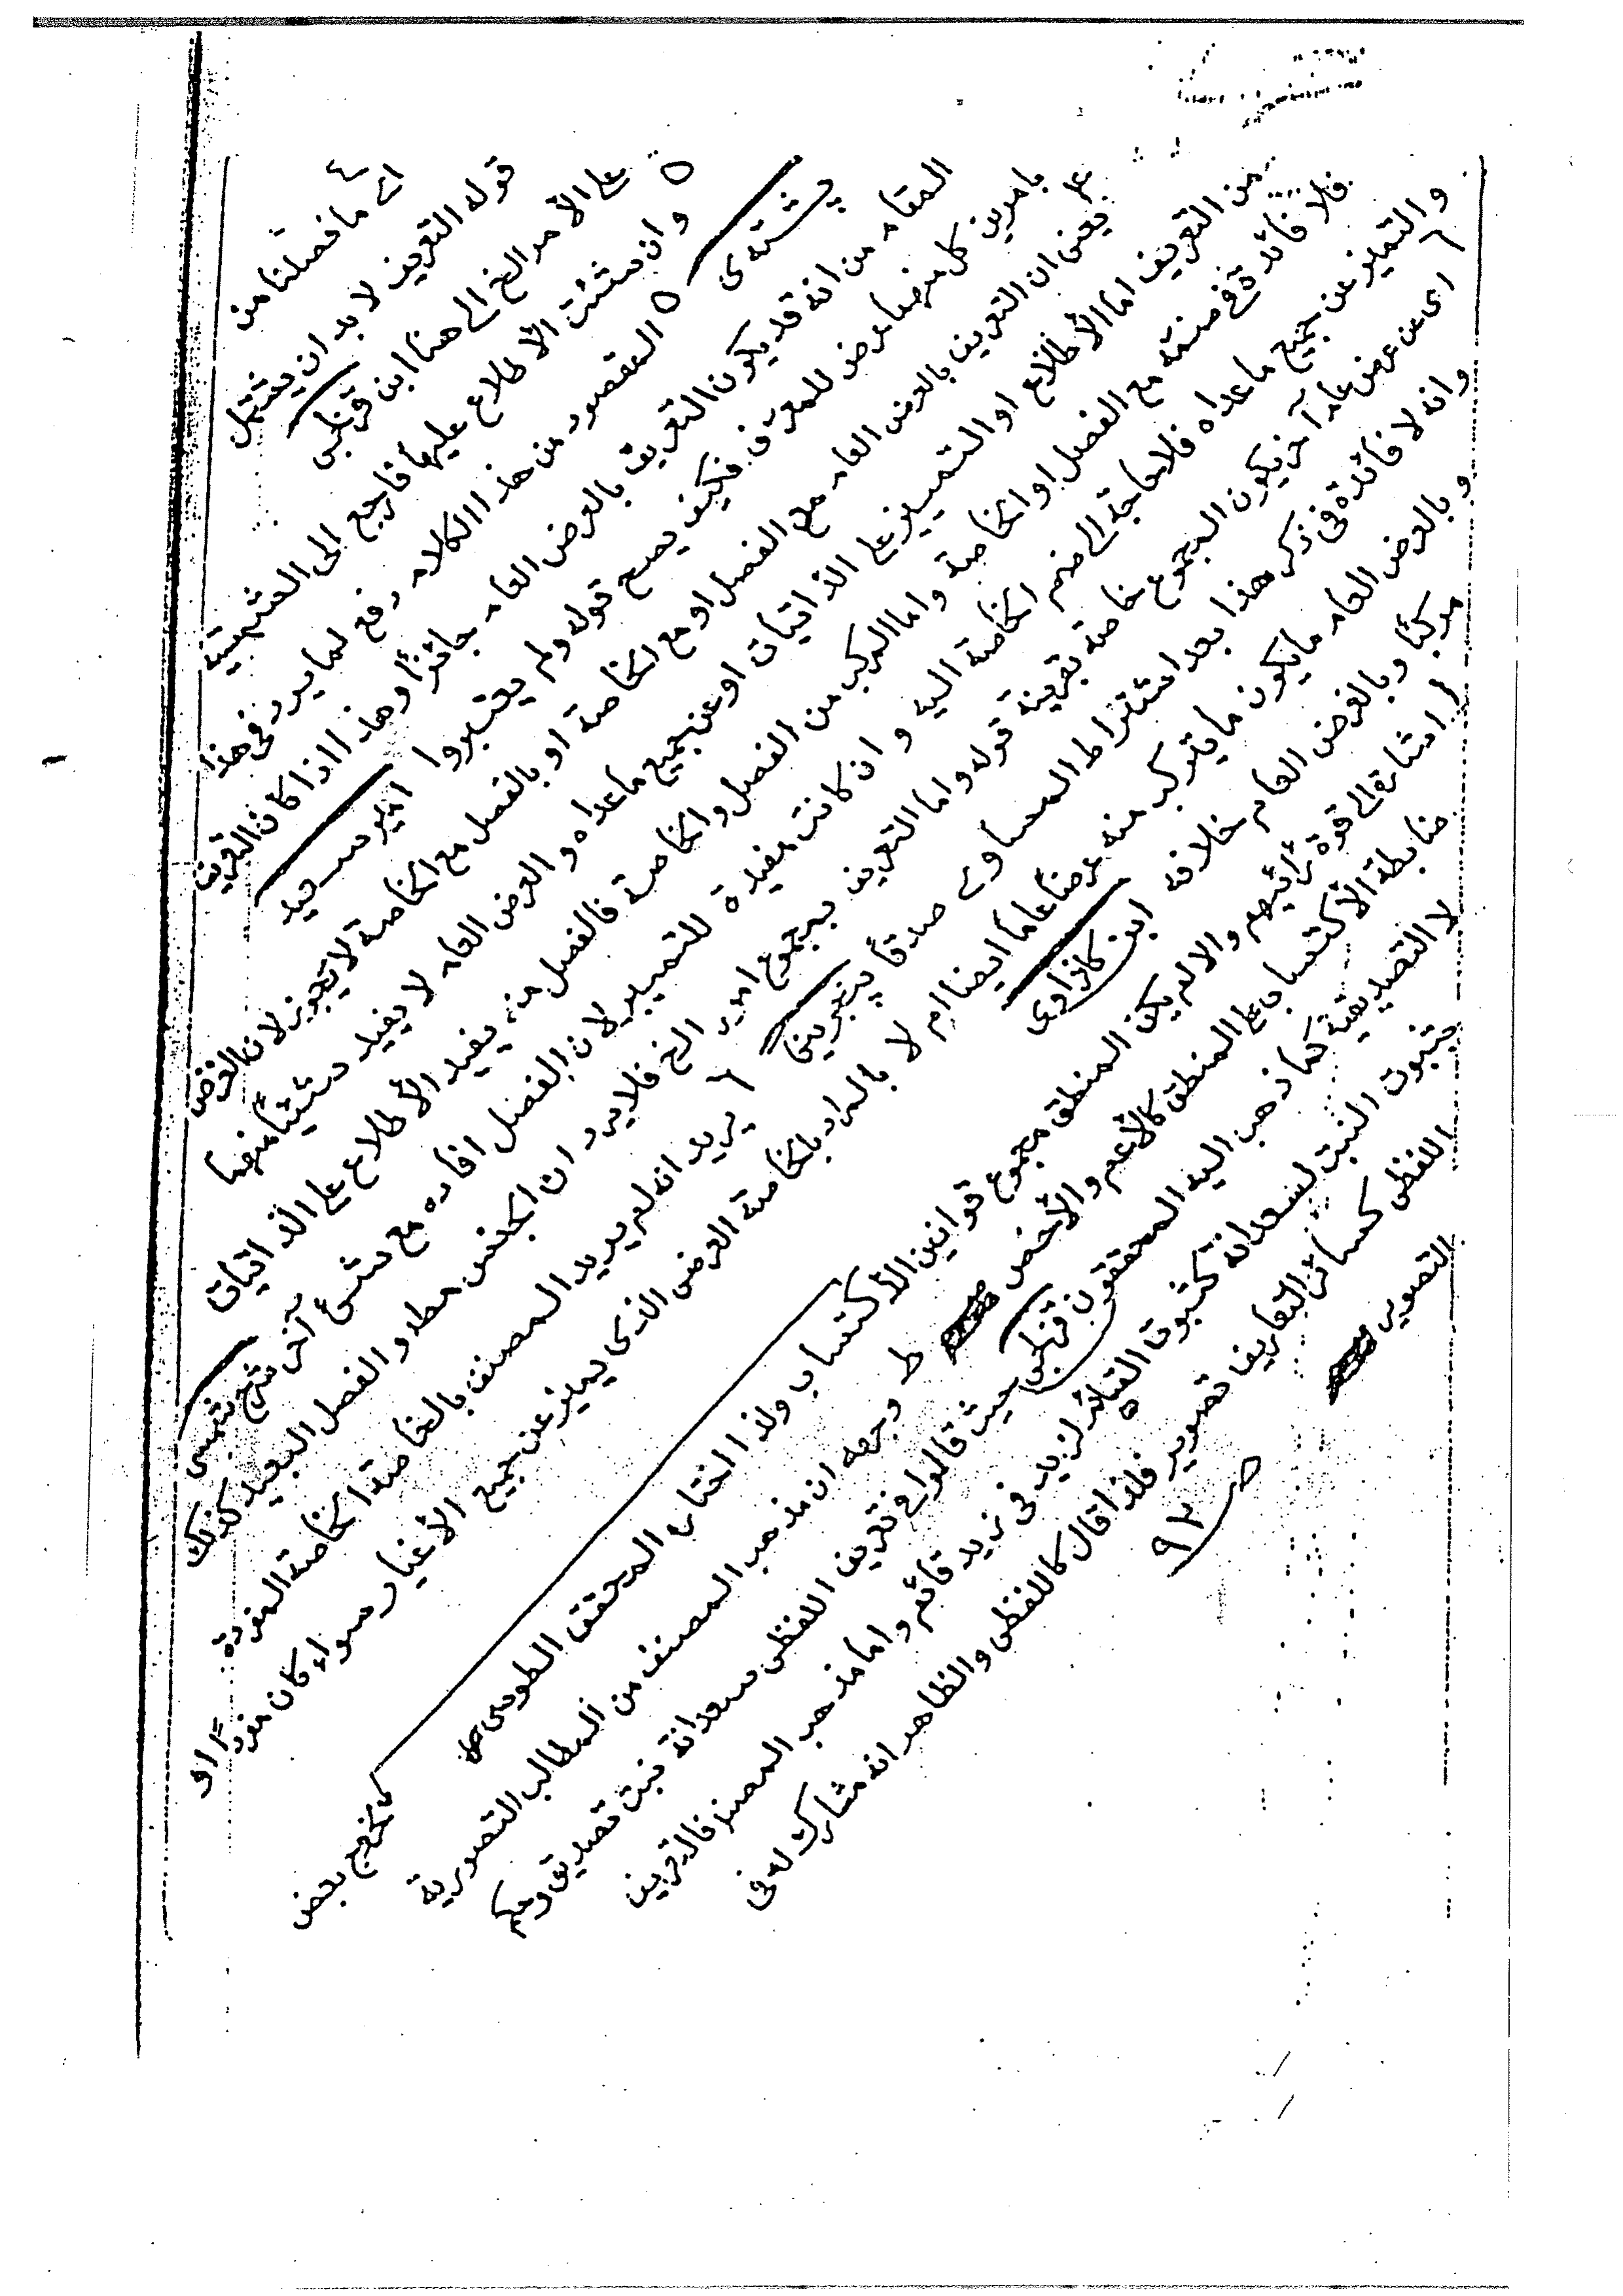 ٤ اى ما فصلنا من
قوله التعريف لا بد ان يشتمل
على الأمر الخ الى هنا ابن قزلجى
٥ وان شئت الأطلاع عليها فارجع الى الشمسية
پشتهى ٥ المقصود من هذا الكلام رفع لما يرد فى هذا
المقام من انه قد يكون التعريف بالعرض العام جائزاً وهذا اذا كان التعريف
بامرين كل منهما عرض للمعرف فكيف يصح قوله ولم يعتبروا امير سعيد
يعنى ان التعريف بالعرض العام مع الفصل او مع الخاصة او بالفصل مع الخاصة لا يجوز لان الغرض
من التعريف اما الأطلاع او التمييز على الذاتيات او عن جميع ما عداه والعرض العام لا يفيد شيئاً منهما
فلا فائدة فى ضمه مع الفصل او الخاصة واما المركب من الفصل والخاصة فالفصل منه يفيد الأطلاع على الذاتيات
والتميز عن جميع ما عداه فلا حاجة الى ضم الخاصة اليه وان كانت مفيدة للتمييز لان الفصل افاده مع شئ آخر شرح شمسى
٦ اى من عرض عام آخر يكون المجموع خاصة بقرينة قوله واما التعريف بمجموع امور الخ فلا يرد ان الجنس مطلقا والفصل البعيد كذلك
وانه لا فائدة فى ذكر هذا بعد اشتراط المساوى صدقاً پنجوينى ٦ يريد انه لم يريد المصنف بالخاصة الخاصة المفردة
وبالعرض العام ما يكون ما يتركب منه عرضاً عاماً ايضا ام لا بل اراد بالخاصة العرض الذى يميز عن جميع الأغيار سواء كان مفرداً او
مركباً وبالعرض العام خلافه ابن كازاوى
اشارة الى قوة رأيهم والا لم يكن المنطق مجموع قوانين الأكتساب ولذا اختار المحقق الطوسى ك يخرج بعض
ضابطة الأكتساب على المنطق كالأعم والأخص ط وجهه ان مذهب المصنف من المطالب التصورية
لا التصديقية كما ذهب اليه المحققون قزلجى حيث قالوا فى تعريف اللفظى سعدانة نبت تصديق وحكم
بثبوت النبت لسعدانة كثبوت القائم لزيد فى زيد قائم واما مذهب المصنف فالتعريف
اللفظى كسائر التعاريف تصوير فلذا قال كاللفظى والظاهر انه مشارك له فى
التصوير
صـ ٩٢